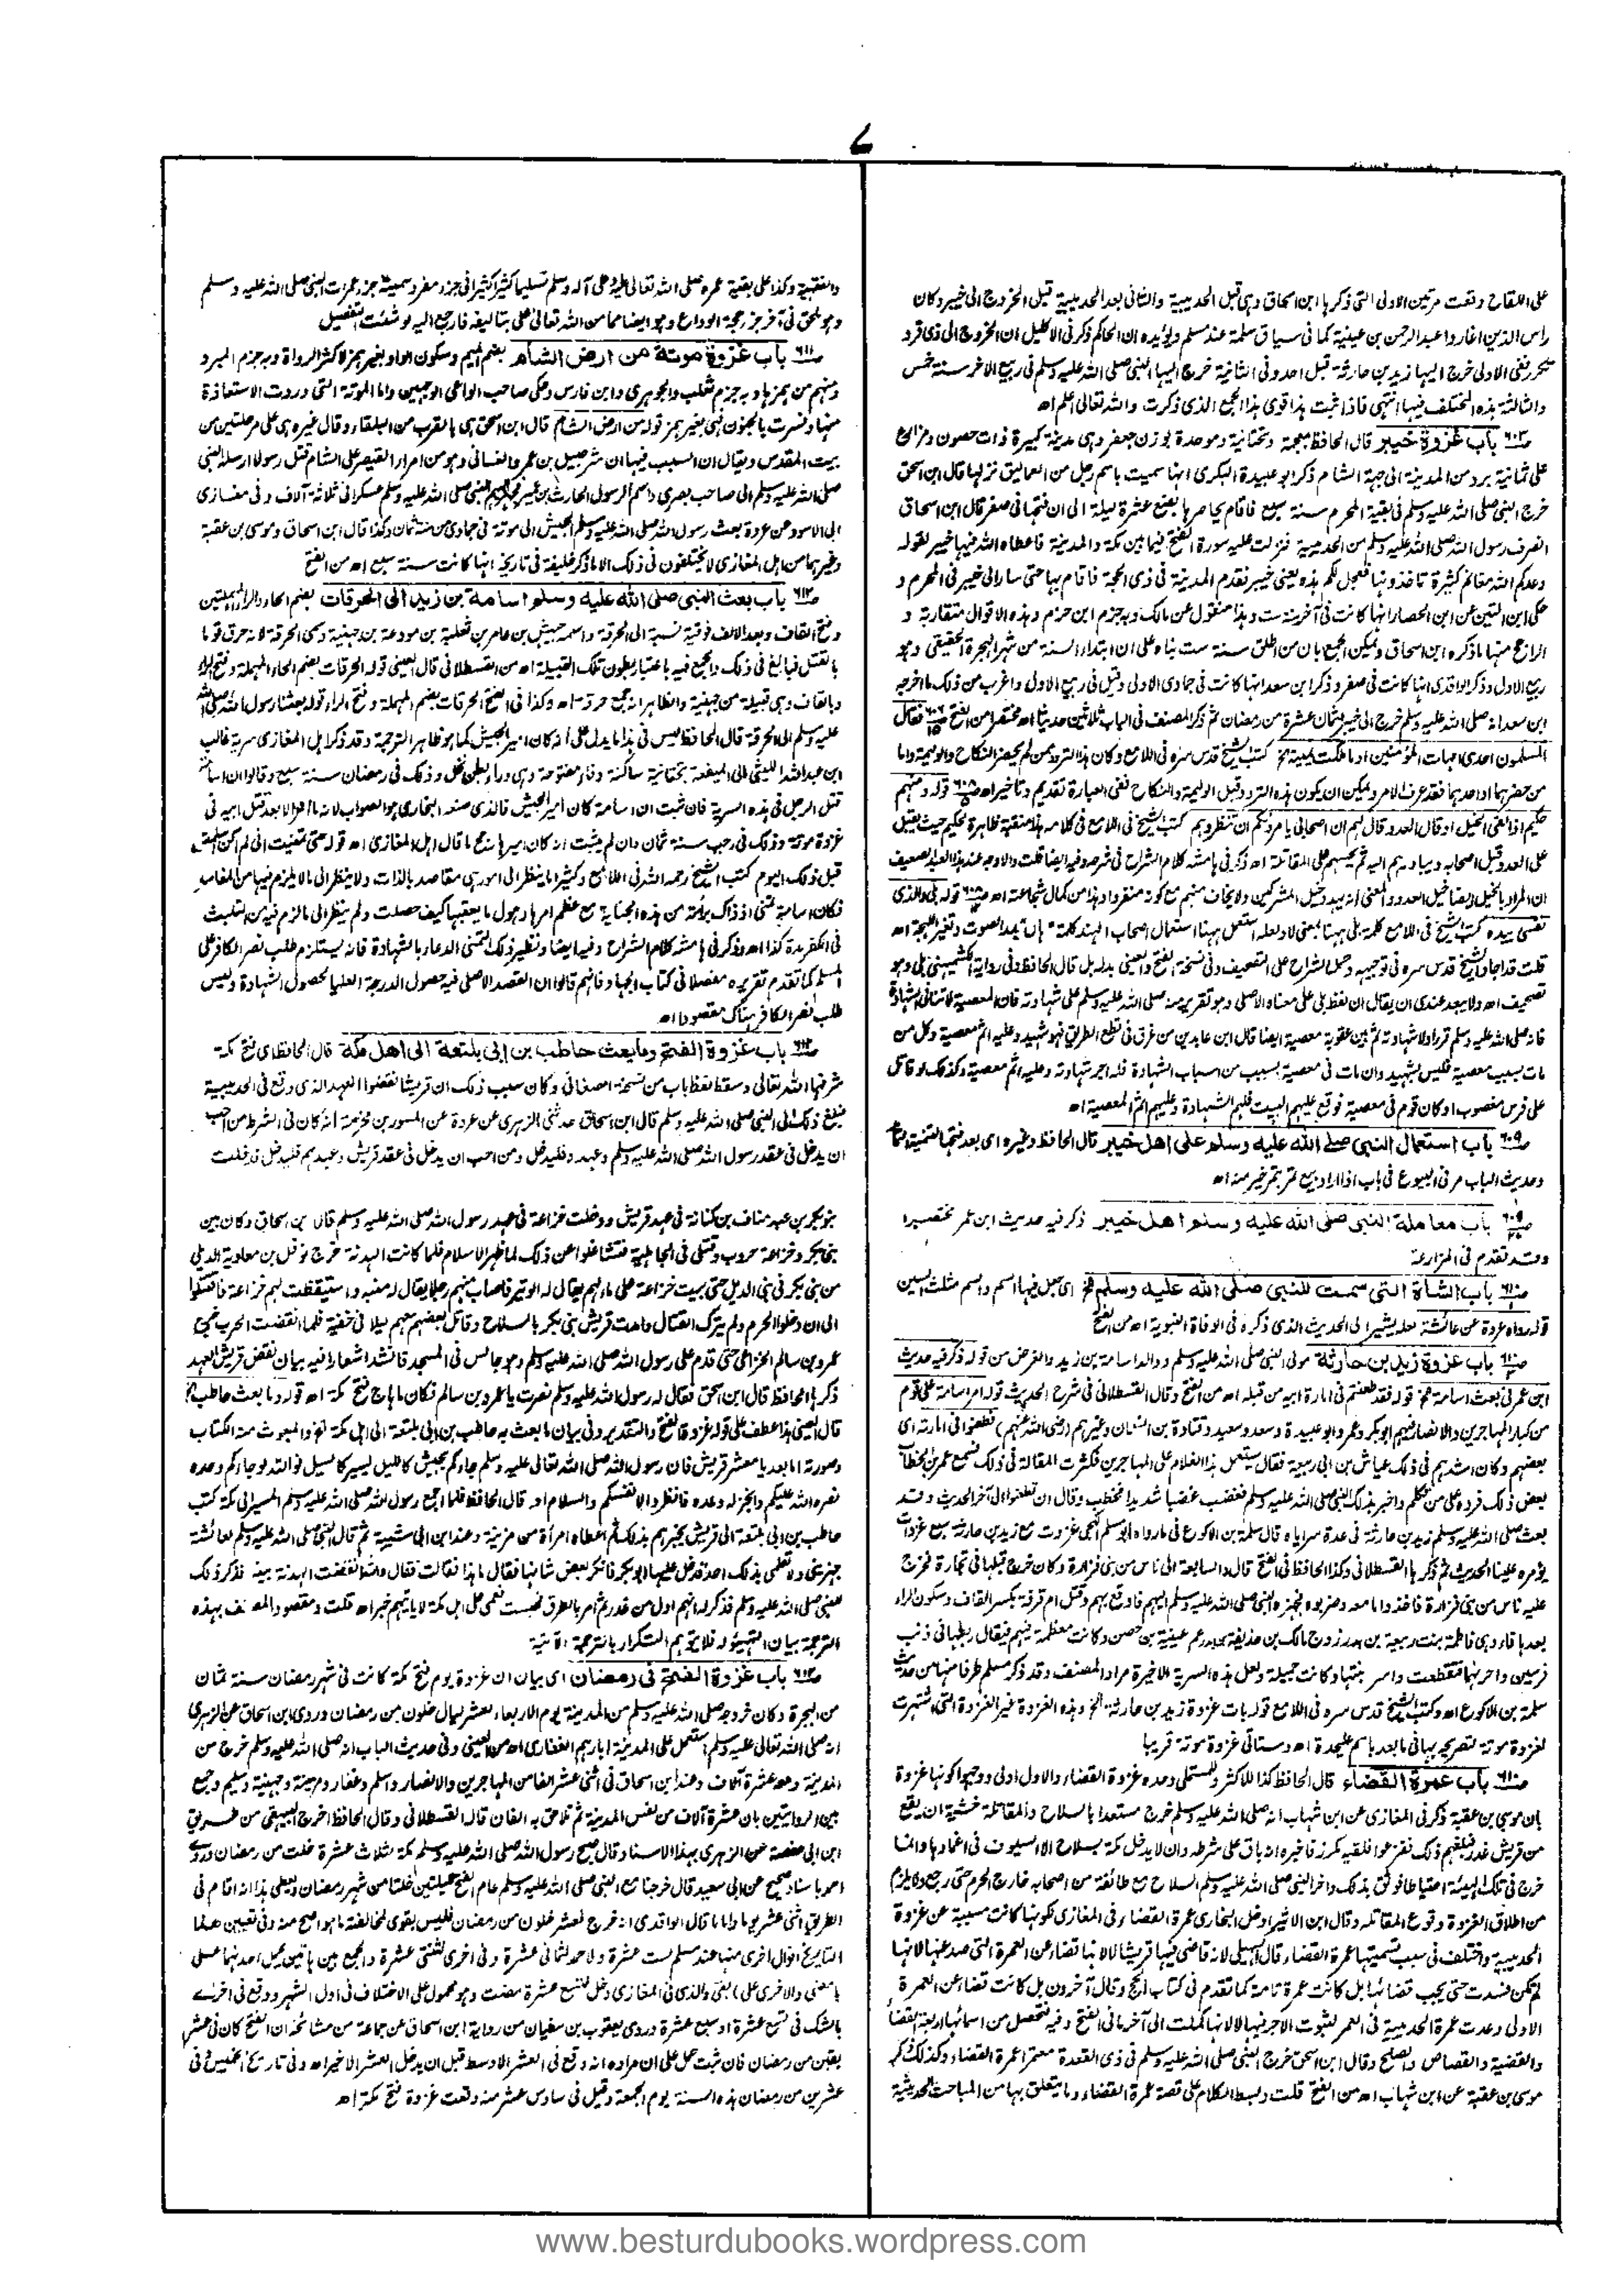 ٧
على اللقاح وقعت مرتين الاولى التى ذكرها ابن اسحاق وهى قبل الحديبية والثانى بعد الحديبية قبل الخروج الى خيبر وكان
راس الذين اغاروا عبد الرحمن بن عيينة كما فى سياق سلمة عند مسلم ويؤيده ان الحاكم ذكر فى الاكليل ان الخروج الى ذى قرد
تكرر ففى الاولى خرج اليها زيد بن حارثة قبل احد وفى الثانية خرج اليها النبى صلى الله عليه وسلم فى ربيع الاخر سنة خمس
والثالثة هذه المختلف فيها انتهى فاذا ثبت هذا قوى هذا الجمع الذى ذكرت والله تعالى اعلم اه
باب غزوة خيبر قال الحافظ بمعجمة وتحتانية وموحدة بوزن جعفر وهى مدينة كبيرة ذات حصون ومزارع
على ثمانية برد من المدينة الى جهة الشام ذكر ابو عبيدة البكرى انها سميت باسم رجل من العماليق نزلها قال ابن اسحق
خرج النبى صلى الله عليه وسلم فى بقية المحرم سنة سبع فاقام يحاصرها بضع عشرة ليلة الى ان فتحها فى صفر قال ابن اسحاق
انصرف رسول الله صلى الله عليه وسلم من الحديبية فنزلت عليه سورة الفتح فيما بين مكة والمدينة فاعطاه الله فيها خيبر بقوله
وعدكم الله مغانم كثيرة تاخذونها فعجل لكم هذه يعنى خيبر فقدم المدينة فى ذى الحجة فاقام بها حتى سار الى خيبر فى المحرم و
حكى ابن التين عن ابن الحصار انها كانت فى آخر سنة ست وهذا منقول عن مالك وبه جزم ابن حزم وهذه الاقوال متقاربة و
الراجح منها ما ذكره ابن اسحاق ويمكن الجمع بان من اطلق سنة ست بناه على ان ابتداء السنة من شهر الهجرة الحقيقى وهو
ربيع الاول وذكر الواقدى انها كانت فى صفر وذكر ابن سعد انها كانت فى جمادى الاولى وقيل فى ربيع الاول واغرب من ذلك ما اخرجه
ابن سعد انه صلى الله عليه وسلم خرج الى خيبر لثمان عشرة من رمضان ثم ذكر المصنف فى الباب ثلاثين حديثا اه مختصرا من الفتح فقال
المسلمون احدى امهات المؤمنين او ما ملكت يمينه كتب الشيخ قدس سره فى اللامع وكان هذا التردد ممن لم يحضر النكاح والوليمة واما
من حضرهما او احدهما فقد عرف الامر ويمكن ان يكون هذه التردد قبل الوليمة والنكاح ففى العبارة تقديم وتاخير اه قوله ومنهم
حكيم اذا لقى الخيل او قال العدو قال لهم ان اصحابى يامرونكم ان تنظروهم كتب الشيخ فى اللامع فى كلامه هذا منقبة ظاهرة لحكيم حيث يقبل
قلت قد اجاد الشيخ قدس سره فى توجيهه وحمله الشراح على التصحيف وفى نسخة الفتح والعينى بدله بل قال الحافظ وفى رواية الكشميهنى بلى وهو
تصحيف اه ولا يبعد عندى ان يقال ان لفظ بلى على معناه الاصلى وهو تقرير منه صلى الله عليه وسلم على شهادته فان المعصية لا تنافى الشهادة
فانه صلى الله عليه وسلم قرر اولا شهادته ثم بين عقوبة معصية ايضا قال ابن عابدين من غرق فى قطع الطريق فهو شهيد وعليه اثم معصية وكل من
مات بسبب معصية فليس بشهيد وان مات فى معصية بسبب من اسباب الشهادة فله اجر شهادته وعليه اثم معصية وكذلك لو قاتل
على فرس مغصوب او كان قوم فى معصية فوقع عليهم البيت فلهم الشهادة وعليهم اثم المعصية اه
باب استعمال النبى صلى الله عليه وسلم على اهل خيبر قال الحافظ وغيره اى بعد فتحها
وحديث الباب مر فى البيوع فى باب اذا اراد بيع تمر بتمر خير منه اه
باب معاملة النبى صلى الله عليه وسلم اهل خيبر ذكر فيه حديث ابن عمر مختصرا
وقد تقدم فى المزارعة
باب الشاة التى سمت للنبى صلى الله عليه وسلم الخ اى جعل فيها السم والسم مثلث السين
قوله رواه عروة عن عائشة لعله يشير الى الحديث الذى ذكره فى الوفاة النبوية اه من الفتح
باب غزوة زيد بن حارثة مولى النبى صلى الله عليه وسلم ووالد اسامة بن زيد والغرض من قوله ذكر فيه حديث
ابن عمر فى بعث اسامة الخ قوله فقد طعنتم فى امارة ابيه من قبله اه من الفتح وقال القسطلانى فى شرح الحديث قوله امر اسامة على قوم
من كبار المهاجرين والانصار فيهم ابو بكر وعمر وابو عبيدة وسعد وسعيد وقتادة بن النعمان وغيرهم (رضى الله عنهم) فطعنوا فى امارته اى
بعضهم وكان اشدهم فى ذلك عياش بن ابى ربيعة فقال يستعمل هذا الغلام على المهاجرين فكثرت المقالة فى ذلك فسمع عمر بن الخطاب
بعض ذلك فرده على من تكلم واخبر بذلك النبى صلى الله عليه وسلم فغضب غضبا شديدا فخطب وقال ان تطعنوا الى آخر الحديث وقد
بعث صلى الله عليه وسلم زيد بن حارثة فى عدة سراياه قال سلمة بن الاكوع فيما رواه ابو مسلم الكجى غزوت مع زيد بن حارثة سبع غزوات
يؤمره علينا الحديث ثم ذكرها القسطلانى وكذا الحافظ فى الفتح قال والسابعة الى ناس من بنى فزارة وكان خرج قبلها فى تجارة فخرج
عليه ناس من بنى فزارة فاخذوا ما معه وضربوه فجهزه النبى صلى الله عليه وسلم اليهم فاوقع بهم وقتل ام قرفة بكسر القاف وسكون الراء
بعدها فاء وهى فاطمة بنت ربيعة بن بدر زوج مالك بن حذيفة بن بدر عم عيينة بن حصن وكانت معظمة فيهم فيقال ربطها فى ذنب
فرسين واجراهما فتقطعت واسر بنتها وكانت جميلة ولعل هذه السرية الاخيرة مراد المصنف وقد ذكر مسلم طرفا منها من حديث
سلمة بن الاكوع اه وكتب الشيخ قدس سره فى اللامع قوله باب غزوة زيد بن حارثة الخ وهذه الغزوة غير الغزوة التى اشتهرت
لغزوة موتة لتصريحه بها فيما بعد باسم عليحدة اه وستاتى غزوة موتة قريبا
باب عمرة القضاء قال الحافظ كذا للاكثر وللمستملى وحده غزوة القضاء والاول اولى ووجهوا كونها غزوة
بان موسى بن عقبة ذكر فى المغازى عن ابن شهاب انه صلى الله عليه وسلم خرج مستعدا بالسلاح والمقاتلة خشية ان يقع
من قريش غدر فبلغهم ذلك ففزعوا فلقيه مكرز فاخبره انه باق على شرطه وان لا يدخل مكة بسلاح الا السيوف فى اغمادها وانما
خرج فى تلك الهيئة احتياطا فوثق بذلك واخر النبى صلى الله عليه وسلم السلاح مع طائفة من اصحابه خارج الحرم حتى رجع ولا يلزم
من اطلاق الغزوة وقوع المقاتلة وقال ابن الاثير ادخل البخارى عمرة القضاء فى المغازى لكونها كانت مسببة عن غزوة
الحديبية واختلف فى سبب تسميتها عمرة القضاء قال السهيلى لانه قاضى فيها قريشا لا لانها قضاء عن العمرة التى صد عنها لانها
لم تكن فسدت حتى يجب قضائها بل كانت عمرة تامة كما تقدم فى كتاب الحج وقال آخرون بل كانت قضاء عن العمرة
الاولى وعدت عمرة الحديبية فى العمر لثبوت الاجر فيها لا لانها كملت الى آخر ما فى الفتح وفيه فتحصل من اسمائها اربعة القضاء
والقضية والقصاص والصلح وقال ابن اسحق خرج النبى صلى الله عليه وسلم فى ذى القعدة معتمرا عمرة القضاء وكذلك ذكر
موسى بن عقبة عن ابن شهاب اه من الفتح قلت وبسط الكلام على قصة عمرة القضاء وما يتعلق بها من المباحث الحديثية
والفقهية وكذا على بقية عمره صلى الله تعالى عليه وعلى آله وسلم تسليما كثيرا كثيرا فى جزء مفرد سميته جزء عمرات النبى صلى الله عليه وسلم
وهو ملحق فى آخر جزء حجة الوداع وهو ايضا مما من الله تعالى على بتاليفه فارجع اليه لو شئت التفصيل
باب غزوة موتة من ارض الشام بضم الميم وسكون الواو بغير همز لاكثر الرواة وبه جزم المبرد
ومنهم من همزها وبه جزم ثعلب والجوهرى وابن فارس وحكى صاحب الواعى الوجهين واما الموتة التى وردت الاستعاذة
منها وفسرت بالجنون فهى بغير همز قوله من ارض الشام قال ابن اسحق هى بالقرب من البلقاء وقال غيره هى على مرحلتين من
بيت المقدس ويقال ان السبب فيها ان شرحبيل بن عمرو الغسانى وهو من امراء القيصر على الشام قتل رسولا ارسله النبى
صلى الله عليه وسلم الى صاحب بصرى واسم الرسول الحارث بن عمير فجهز اليهم النبى صلى الله عليه وسلم عسكرا فى ثلاثة آلاف وفى مغازى
ابى الاسود عن عروة بعث رسول الله صلى الله عليه وسلم الجيش الى موتة فى جمادى من سنة ثمان وكذا قال ابن اسحاق وموسى بن عقبة
وغيرهما من اهل المغازى لا يختلفون فى ذلك الا ما ذكر خليفة فى تاريخه انها كانت سنة سبع اه من الفتح
باب بعث النبى صلى الله عليه وسلم اسامة بن زيد الى الحرقات بضم الحاء والراء المهملتين
وفتح القاف وبعد الالف فوقية نسبة الى الحرقة واسمه جهيش بن عامر بن ثعلبة بن مودعة بن جهينة وسمى الحرقة لانه حرق قوما
بالقتل فبالغ فى ذلك والجمع فيه باعتبار بطون تلك القبيلة اه من القسطلانى قال العينى قوله الحرقات بضم الحاء المهملة وفتح الراء
وبالقاف وهى قبيلة من جهينة والظاهر انه جمع حرقة اه وكذا فى الفتح الحرقات بضم المهملة وفتح الراء قوله بعثنا رسول الله صلى الله
عليه وسلم الى الحرقة قال الحافظ ليس فى هذا ما يدل على انه كان امير الجيش كما هو ظاهر الترجمة وقد ذكر اهل المغازى سرية غالب
ابن عبد الله الليثى الى الميفعة بتحتانية ساكنة وفاء مفتوحة وهى وراء بطن نخل وذلك فى رمضان سنة سبع وقالوا ان اسامة
قتل الرجل فى هذه السرية فان ثبت ان اسامة كان امير الجيش فالذى صنعه البخارى هو الصواب لانه ما امر الا بعد قتل ابيه فى
غزوة موتة وذلك فى رجب سنة ثمان وان لم يثبت انه كان اميرها رجح ما قال اهل المغازى اه قوله حتى تمنيت انى لم اكن اسلمت
قبل ذلك اليوم كتب الشيخ رحمه الله فى اللامع وكثيرا ما ينظر الى امور هى مقاصد بالذات ولا ينظر الى ما يلزم فيها من المفاسد
المسلم كما تقدم تقريره مفصلا فى كتاب الجهاد فانهم قالوا ان القصد الاصلى فيه حصول الدرجة العليا لحصول الشهادة وليس
طلب نصر الكافر هناك مقصودا اه
باب غزوة الفتح وما بعث حاطب بن ابى بلتعة الى اهل مكة قال الحافظ اى فتح مكة
شرفها الله تعالى وسقط لفظ باب من نسخة الصغانى وكان سبب ذلك ان قريشا نقضوا العهد الذى وقع فى الحديبية
فبلغ ذلك الى النبى صلى الله عليه وسلم قال ابن اسحاق حدثنى الزهرى عن عروة عن المسور بن مخرمة انه كان فى الشرط من احب
ان يدخل فى عقد رسول الله صلى الله عليه وسلم وعهده فليدخل ومن احب ان يدخل فى عقد قريش وعهدهم فليدخل فدخلت
بنو بكر بن عبد مناف بن كنانة فى عهد قريش ودخلت خزاعة فى عهد رسول الله صلى الله عليه وسلم قال ابن اسحاق وكان بين
بنى بكر وخزاعة حروب وقتلى فى الجاهلية فتشاغلوا عن ذلك لما ظهر الاسلام فلما كانت الهدنة خرج نوفل بن معاوية الديلى
من بنى بكر فى بنى الديل حتى بيت خزاعة على ماء لهم يقال له الوتير فاصاب منهم رجلا يقال له منبه واستيقظت لهم خزاعة فاقتتلوا
الى ان دخلوا الحرم ولم يترك القتال وامدت قريش بنى بكر بالسلاح وقاتل بعضهم معهم ليلا فى خفية فلما انقضت الحرب خرج
عمرو بن سالم الخزاعى حتى قدم على رسول الله صلى الله عليه وسلم وهو جالس فى المسجد فانشد اشعارا فيه بيان نقض قريش العهد
ذكرها الحافظ قال ابن اسحق فقال له رسول الله صلى الله عليه وسلم نصرت يا عمرو بن سالم فكان ما هاج فتح مكة اه قوله وما بعث حاطب الخ
قال العينى هذا عطف على قوله غزوة الفتح والتقدير وفى بيان ما بعث به حاطب بن ابى بلتعة الى اهل مكة والمبعوث منه الكتاب
وصورته اما بعد يا معشر قريش فان رسول الله صلى الله تعالى عليه وسلم جاءكم بجيش كالليل يسير كالسيل فوالله لو جاءكم وحده
نصره الله عليكم وانجز له وعده فانظروا لانفسكم والسلام اه قال الحافظ فلما اجمع رسول الله صلى الله عليه وسلم المسير الى مكة كتب
حاطب بن ابى بلتعة الى قريش يخبرهم بذلك ثم اعطاه امرأة من مزينة وعند ابن ابى شيبة ثم قال النبى صلى الله عليه وسلم لعائشة
جهزينى ولا تعلمى بذلك احدا فدخل عليها ابو بكر فانكر بعض شانها فقال ما هذا فقالت له فقال والله ما انقضت الهدنة بيننا فذكر ذلك
للنبى صلى الله عليه وسلم فذكر له انهم اول من غدر ثم امر بالطرق فحبست فعمى على اهل مكة لا ياتيهم خبر اه قلت ومقصود المصنف بهذه
الترجمة بيان التهيؤ له فلا يتوهم التكرار بالترجمة الآتية
باب غزوة الفتح فى رمضان اى بيان ان غزوة يوم فتح مكة كانت فى شهر رمضان سنة ثمان
من الهجرة وكان خروجه صلى الله عليه وسلم من المدينة يوم الاربعاء لعشر ليال خلون من رمضان وروى ابن اسحاق عن الزهرى
انه صلى الله تعالى عليه وسلم استعمل على المدينة ابارهم الغفارى اه من العينى وفى حديث الباب انه صلى الله عليه وسلم خرج من
المدينة ومعه عشرة آلاف وعند ابن اسحاق فى اثنى عشر الفا من المهاجرين والانصار واسلم وغفار ومزينة وجهينة وسليم وجمع
بين الروايتين بان عشرة آلاف من نفس المدينة ثم تلاحق به الفان قاله القسطلانى وقال الحافظ اخرج البيهقى من طريق
ابن ابى حفصة عن الزهرى بهذا الاسناد وقال صبح رسول الله صلى الله عليه وسلم مكة لثلاث عشرة خلت من رمضان وروى
احمد باسناد صحيح عن ابى سعيد قال خرجنا مع النبى صلى الله عليه وسلم عام الفتح لليلتين خلتا من شهر رمضان فعلى هذا انه اقام فى
الطريق اثنى عشر يوما واما ما قال الواقدى انه خرج لعشر خلون من رمضان فليس بقوى لمخالفته ما هو اصح منه وفى تعيين هذا
التاريخ اقوال اخرى منها عند مسلم لست عشرة ولاحمد لثمانى عشرة وفى اخرى لثنتى عشرة والجمع بين هاتين بحمل احدهما على
ما مضى والاخرى على ما بقى والذى فى المغازى دخل لتسع عشرة مضت وهو محمول على الاختلاف فى اول الشهر ووقع فى اخرى
بالشك فى تسع عشرة او سبع عشرة وروى يعقوب بن سفيان من رواية ابن اسحاق عن جماعة من مشائخه ان الفتح كان فى عشر
بقين من رمضان فان ثبت حمل على ان مراده انه وقع فى العشر الاوسط قبل ان يدخل العشر الاخير اه وفى تاريخ الخميس فى
عشرين من رمضان هذه السنة يوم الجمعة وقيل فى سادس عشر منه وقعت غزوة فتح مكة اه
www.besturdubooks.wordpress.com